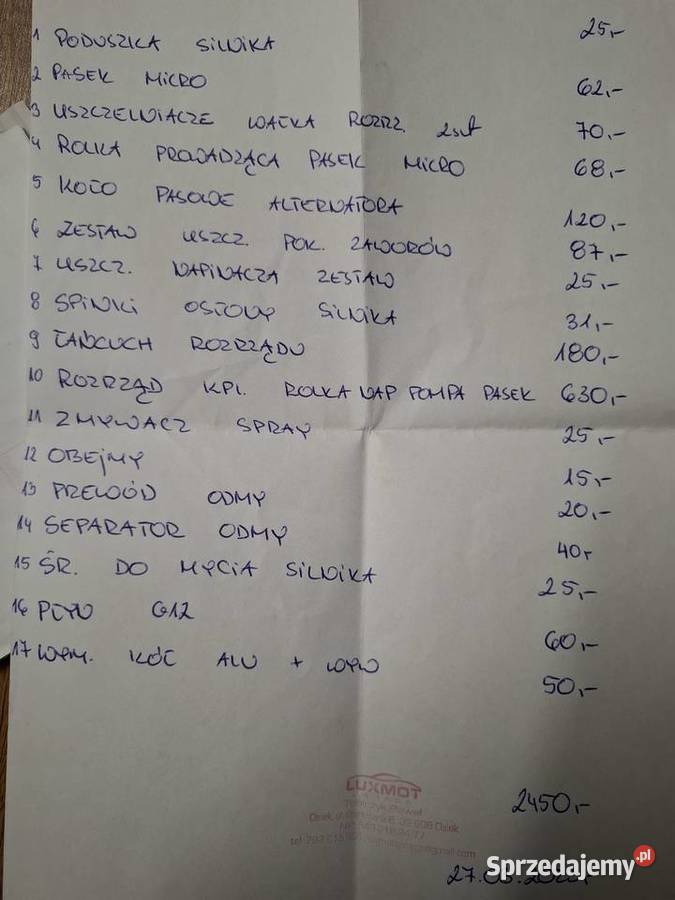 1 PODUSZKA SILNIKA 25,-
2 PASEK MICRO 62,-
3 USZCZELNIACZE WAŁKA ROZRZ. 2szt 70,-
4 ROLKA PROWADZĄCA PASEK MICRO 68,-
5 KOŁO PASOWE ALTERNATORA 120,-
6 ZESTAW USZCZ. POK. ZAWORÓW 87,-
7 USZCZ. NAPINACZA ZESTAW 25,-
8 SPINKI OSŁONY SILNIKA 31,-
9 ŁAŃCUCH ROZRZĄDU 180,-
10 ROZRZĄD KPL. ROLKA NAP POMPA PASEK 630,-
11 ZMYWACZ SPRAY 25,-
12 OBEJMY 15,-
13 PRZEWÓD ODMY 20,-
14 SEPARATOR ODMY 40,-
15 ŚR. DO MYCIA SILNIKA 25,-
16 PŁYN G12 60,-
17 WYM. KÓŁ ALU + WYW 50,-
LUXMOT
2450,-
Sprzedajemy.pl